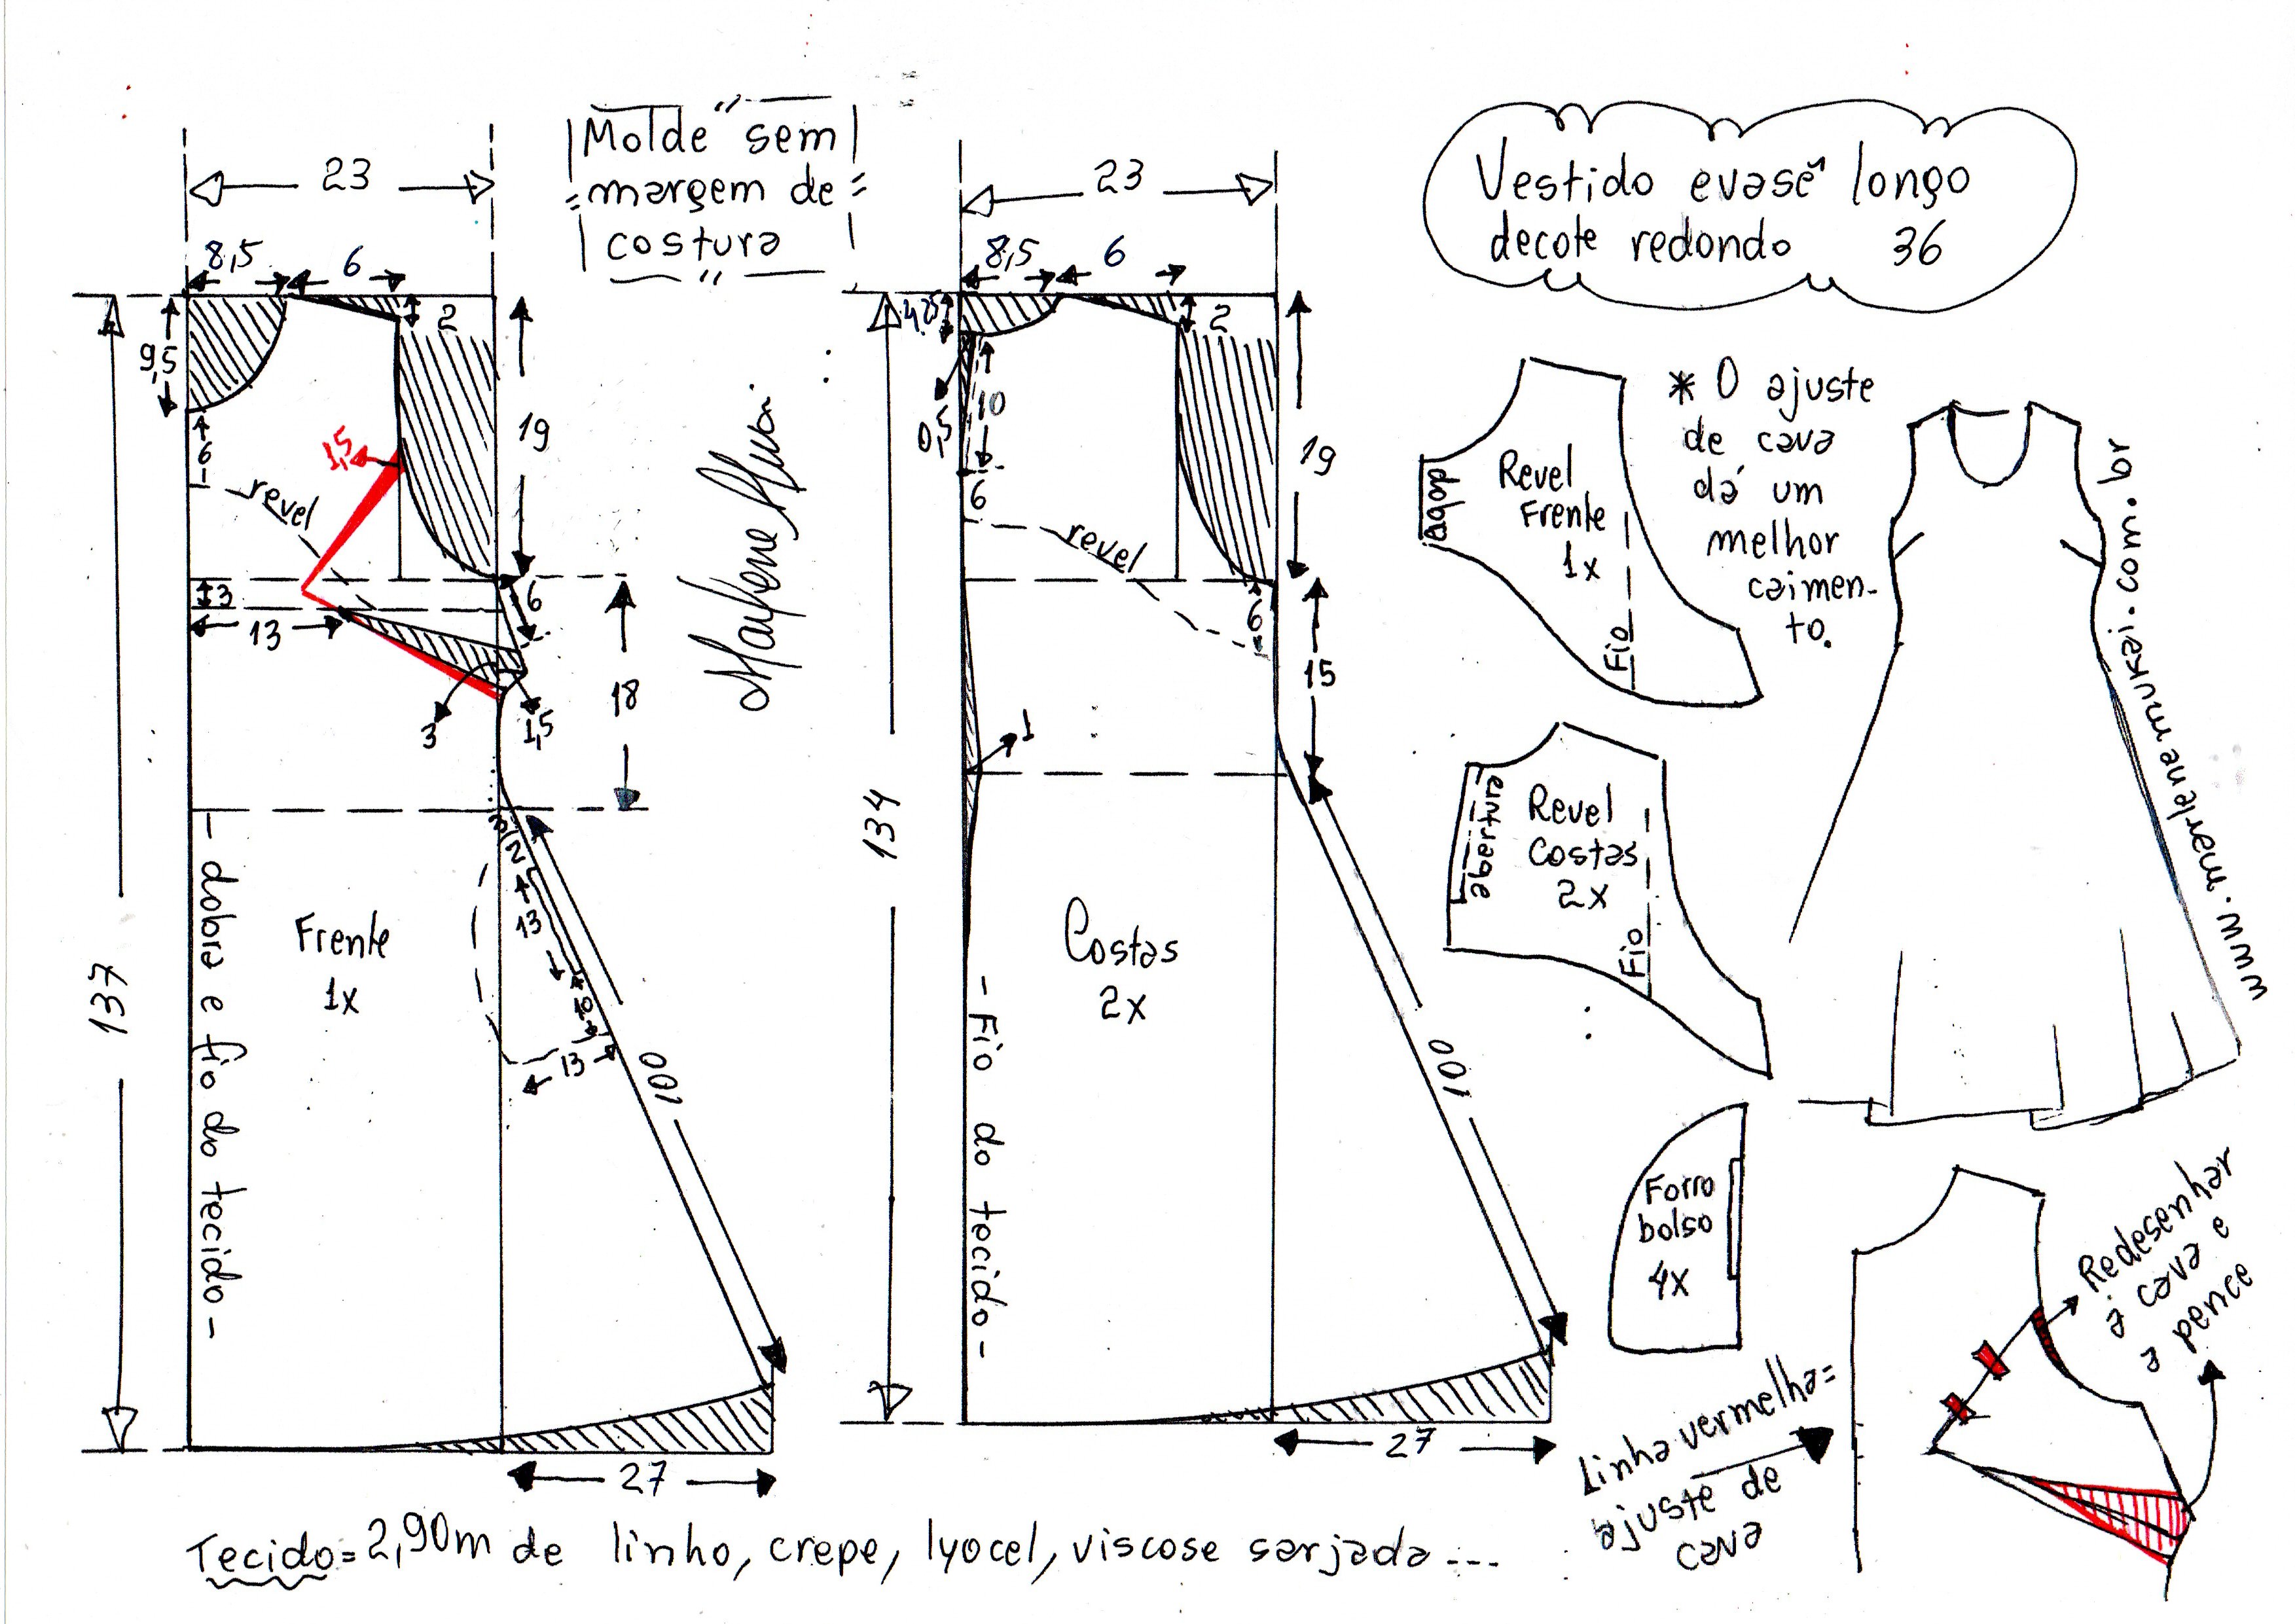 Molde sem
margem de
costura
Vestido evasê longo
decote redondo 36
23
8,5
6
2
9,5
6
revel
1,5
19
3
13
6
18
3
1,5
137
dobra e fio do tecido
Frente
1x
3
2
13
10
13
100
27
23
8,5
6
4,25
2
0,5
10
6
revel
19
6
15
1
134
Costas
2x
Fio do tecido
100
27
dobra
Revel
Frente
1x
Fio
* O ajuste
de cava
dá um
melhor
caimen-
to.
www.marlenemukai.com.br
abertura
Revel
Costas
2x
Fio
Forro
bolso
4x
Linha vermelha=
ajuste de
cava
Redesenhar
a cava e
a pence
Tecido=2,90m de linho, crepe, lyocel, viscose sarjada...